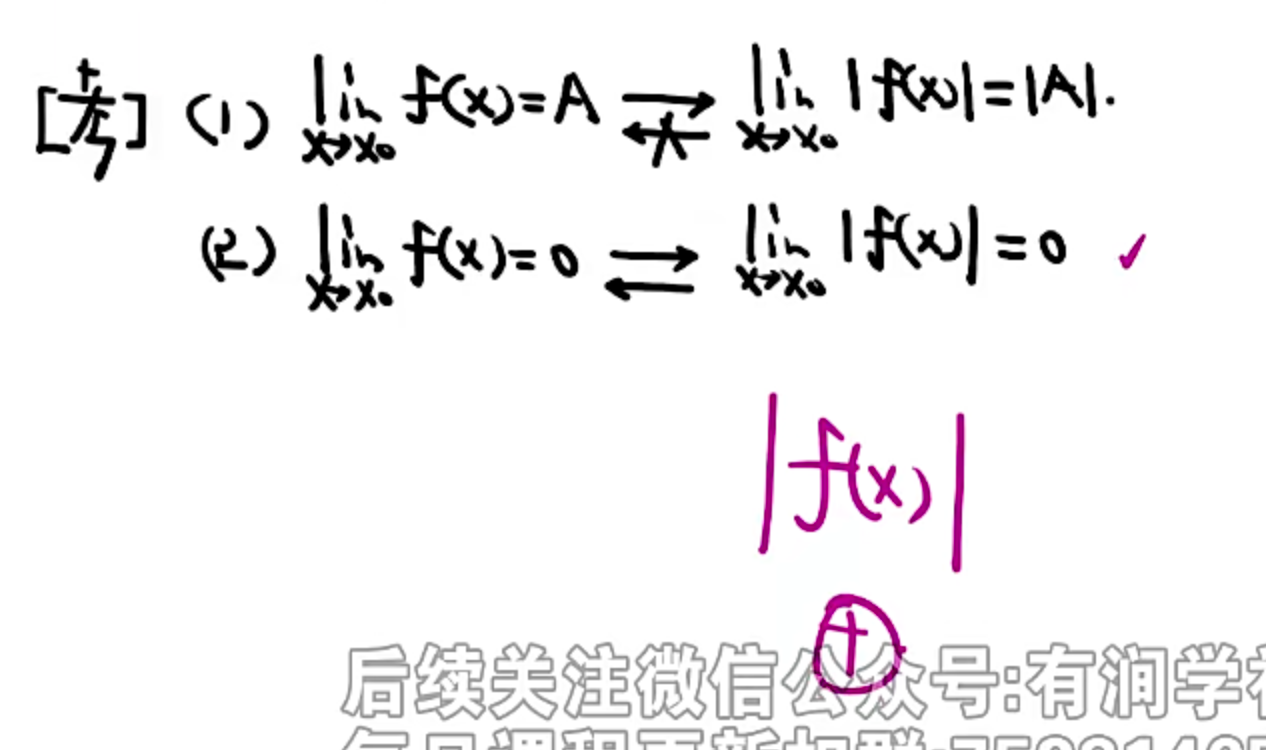 [考] (1) lim x→x₀ f(x)=A ⇄ lim x→x₀ |f(x)|=|A|.
(2) lim x→x₀ f(x)=0 ⇄ lim x→x₀ |f(x)|=0 ✓
|f(x)|
⊕
后续关注微信公众号:有润学